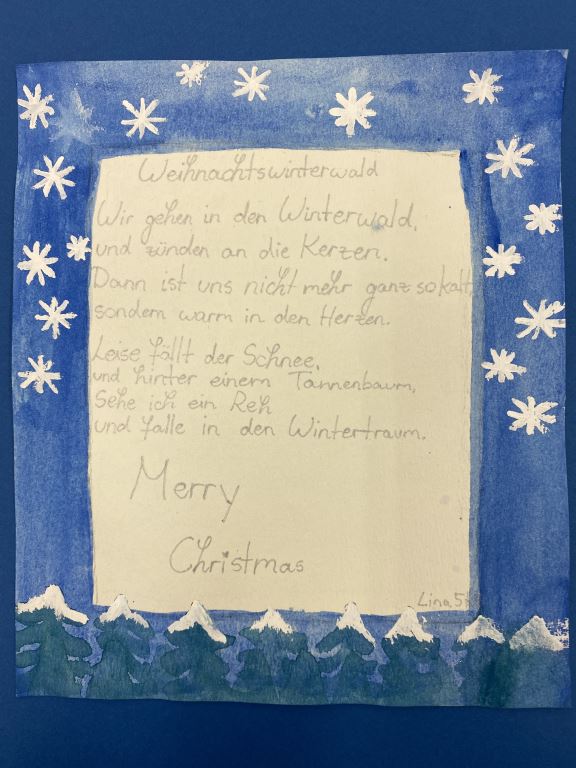 Weihnachtswinterwald
Wir gehen in den Winterwald,
und zünden an die Kerzen.
Dann ist uns nicht mehr ganz so kalt,
sondern warm in den Herzen.
Leise fällt der Schnee,
und hinter einem Tannenbaum,
Sehe ich ein Reh
und falle in den Wintertraum.
Merry
Christmas
Lina